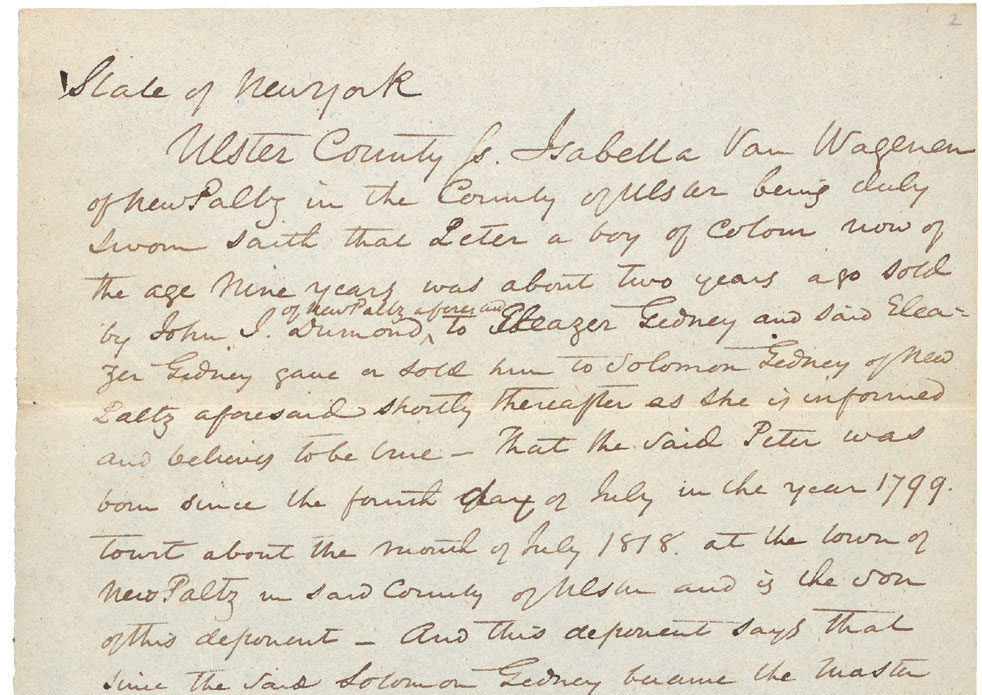 2
State of New York
Ulster County ss. Isabella Van Wagenen
of New Paltz in the County of Ulster being duly
sworn saith that Peter a boy of Colour now of
the age Nine years was about two years ago sold
of New Paltz aforesaid
by John I. Dumond ^ to Eleazer Gedney and said Elea=
zer Gedney gave or sold him to Solomon Gedney of New
Paltz aforesaid shortly thereafter as she is informed
and believes to be true – That the said Peter was
born since the fourth day of July in the year 1799.
towit about the month of July 1818. at the town of
New Paltz in said County of Ulster and is the son
of this deponent – And this deponent says that
since the said Solomon Gedney became the master